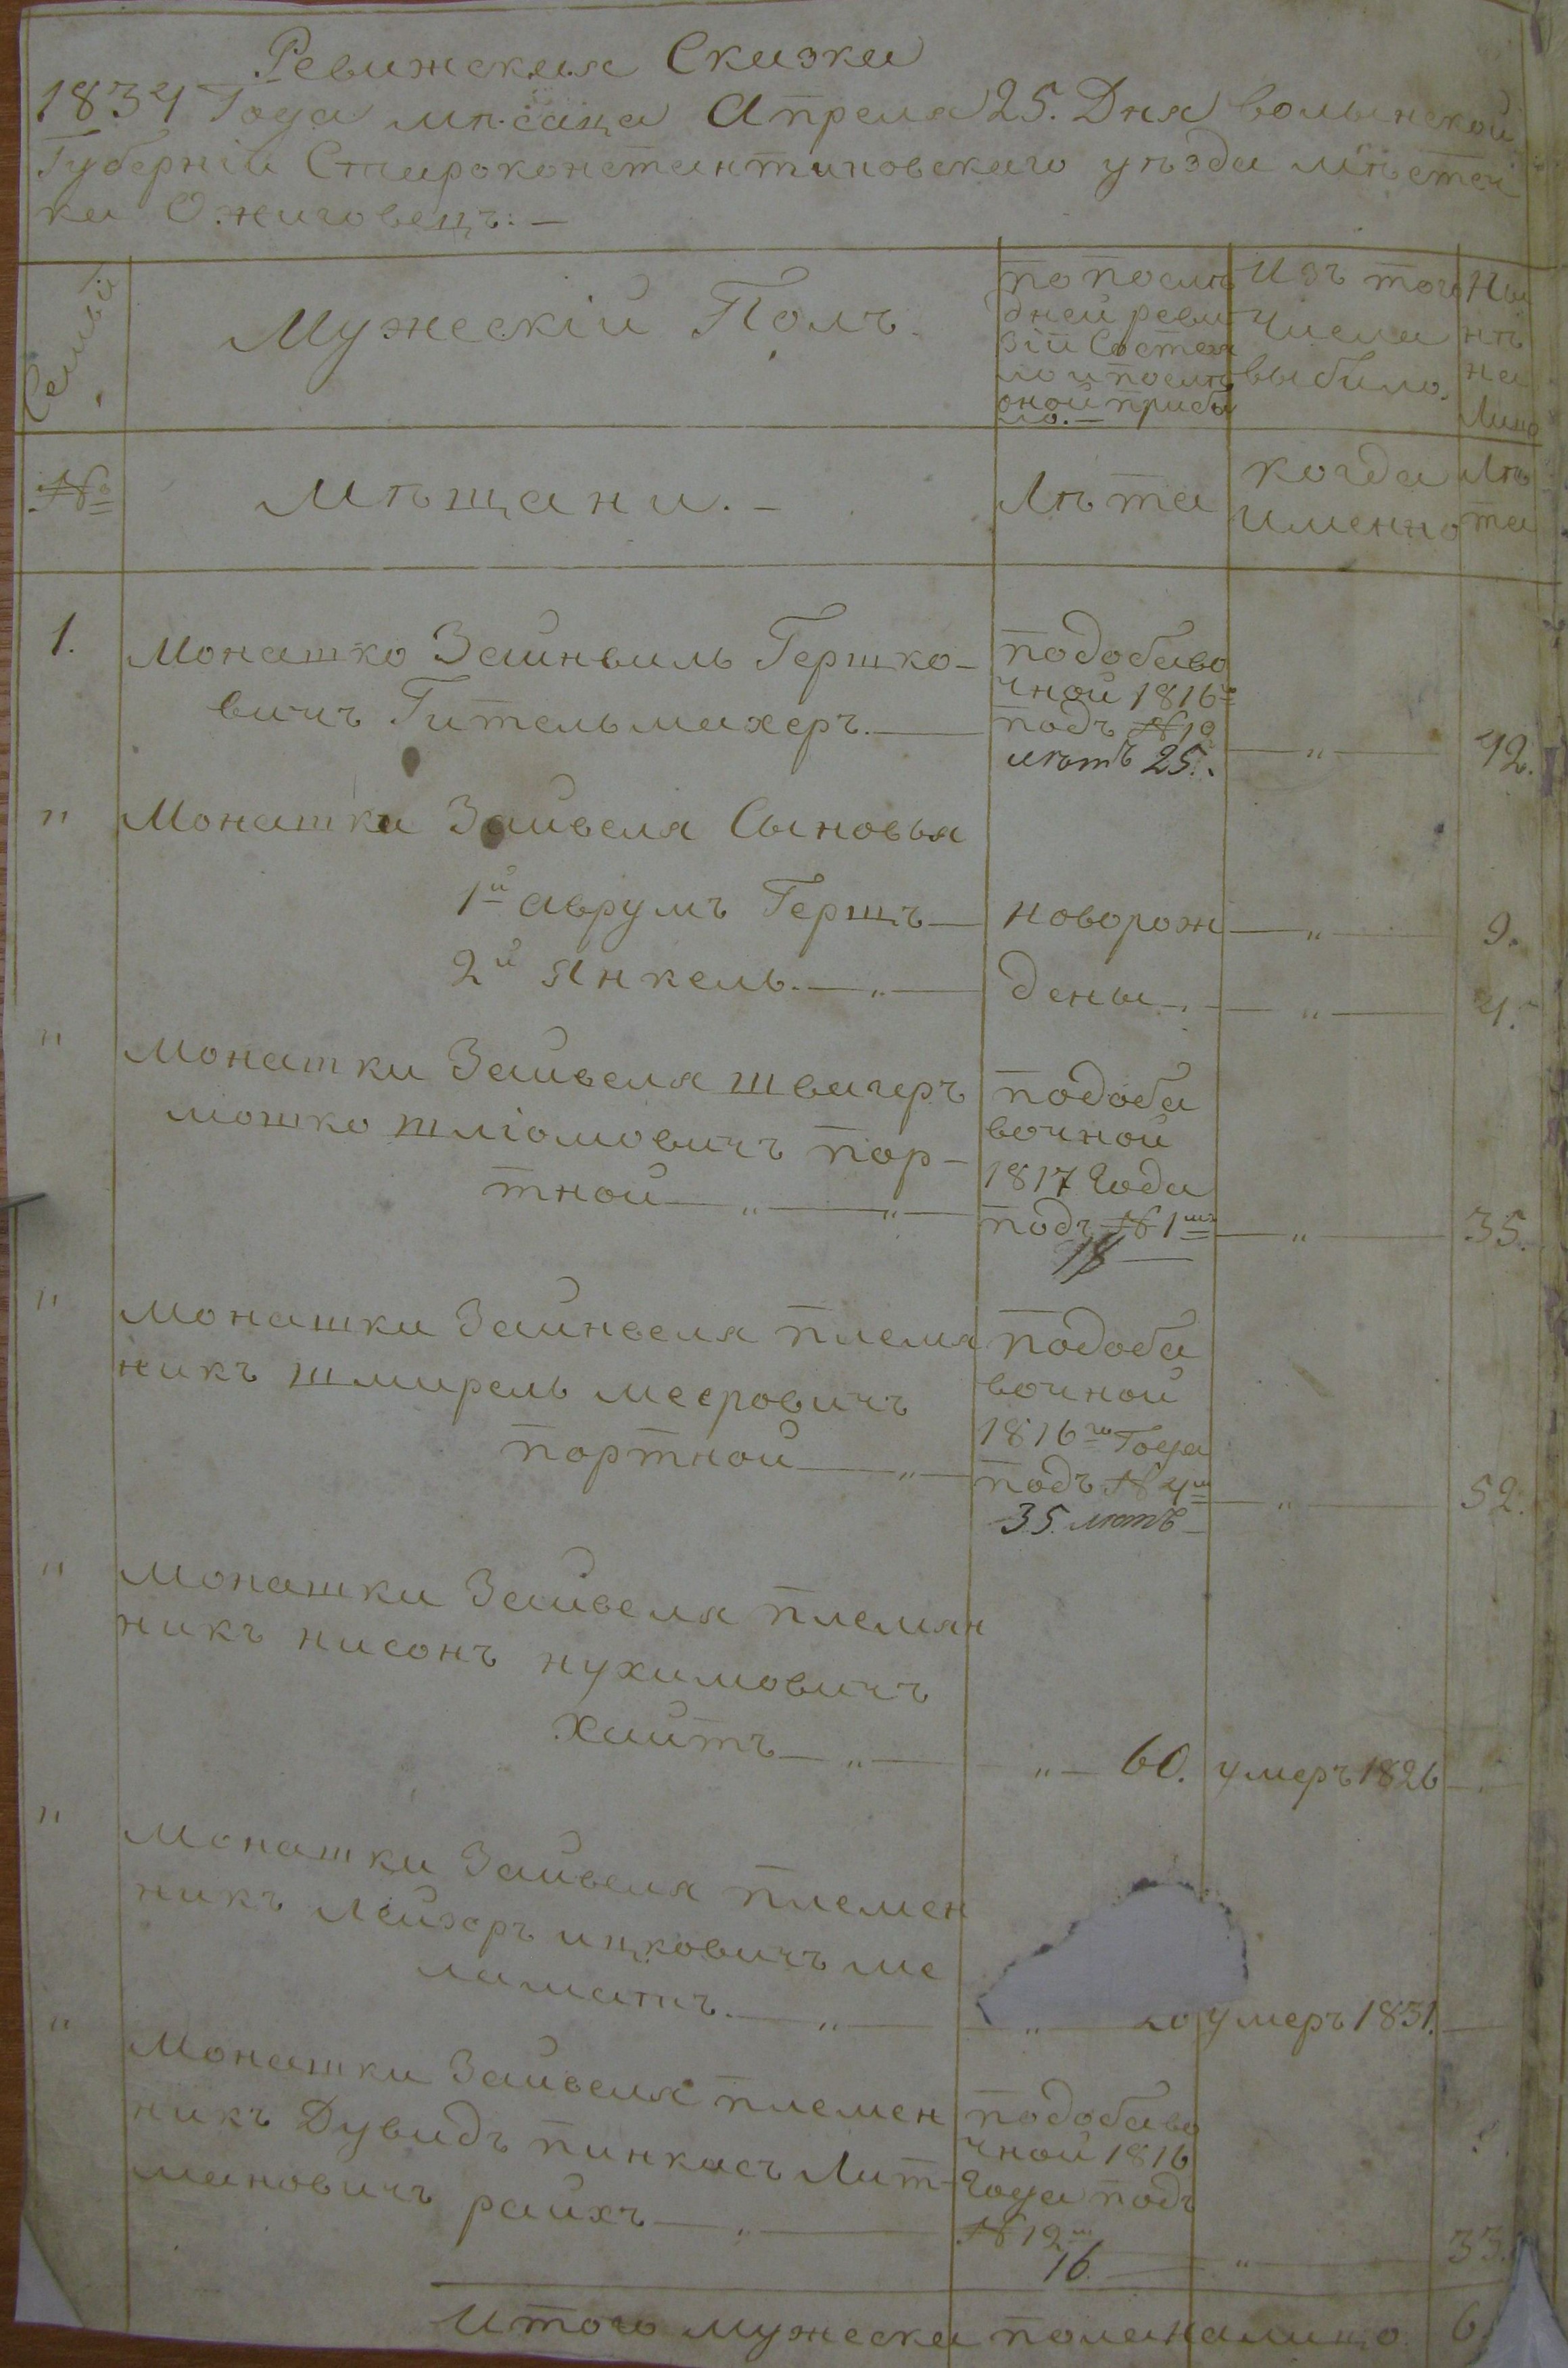 Ревижская Сказка
1834 Года мѣсяца Апреля 25. Дня Волынской
Губерніи Староконстантиновскаго уѣзда мѣстеч
ка Ожиговецъ: —
Семьи
Мужескій Полъ.
по послѣ
дней реви
зіи Состоя
ло и послѣ
оной прибы
ло. —
Изъ того
Числа
выбило.
Ны
нѣ
на
Лицо
№
Мѣщани. —
Лѣта
когда
именно
Лѣ
та
1.
Монашко Зайнвиль Гершко-
вичъ Гительмахеръ. —
подобаво
чной 1816
подъ №
лѣтъ 25.
— „ —
42.
„ Монашка Зайвеля Сыновья
1й Аврумъ Гершъ — новорож — „ — 9.
2й Янкель. — „ — дены — „ — 4.
„ Монашки Зайвеля швагеръ
мошко шліомовичъ пор-
тной — „ — „ —
подоба
вочной
1817 Года
подъ № 1
18 —
— „ —
35.
„ Монашки Зайнвеля племя
никъ шмирель мееровичъ
портной — „ —
подоба
вочной
1816го Года
подъ № 4м
35. лѣтъ —
— „ —
52.
„ Монашки Зайвеля племян
никъ нисонъ нухимовичъ
Хаитъ — „ — „ — 60. умеръ 1826 —
„ Монашки Зайвеля племен
никъ Лейзеръ ицковичъ ме
ламатъ. — „ — „ умеръ 1831. —
„ Монашки Зайвеля племен
никъ Дувидъ пинкасъ Лит-
мановичъ райхъ — „ —
подобаво
чной 1816
Года подъ
№ 12
16. —
— „ —
33.
Итого мужеска пола налицо. 6